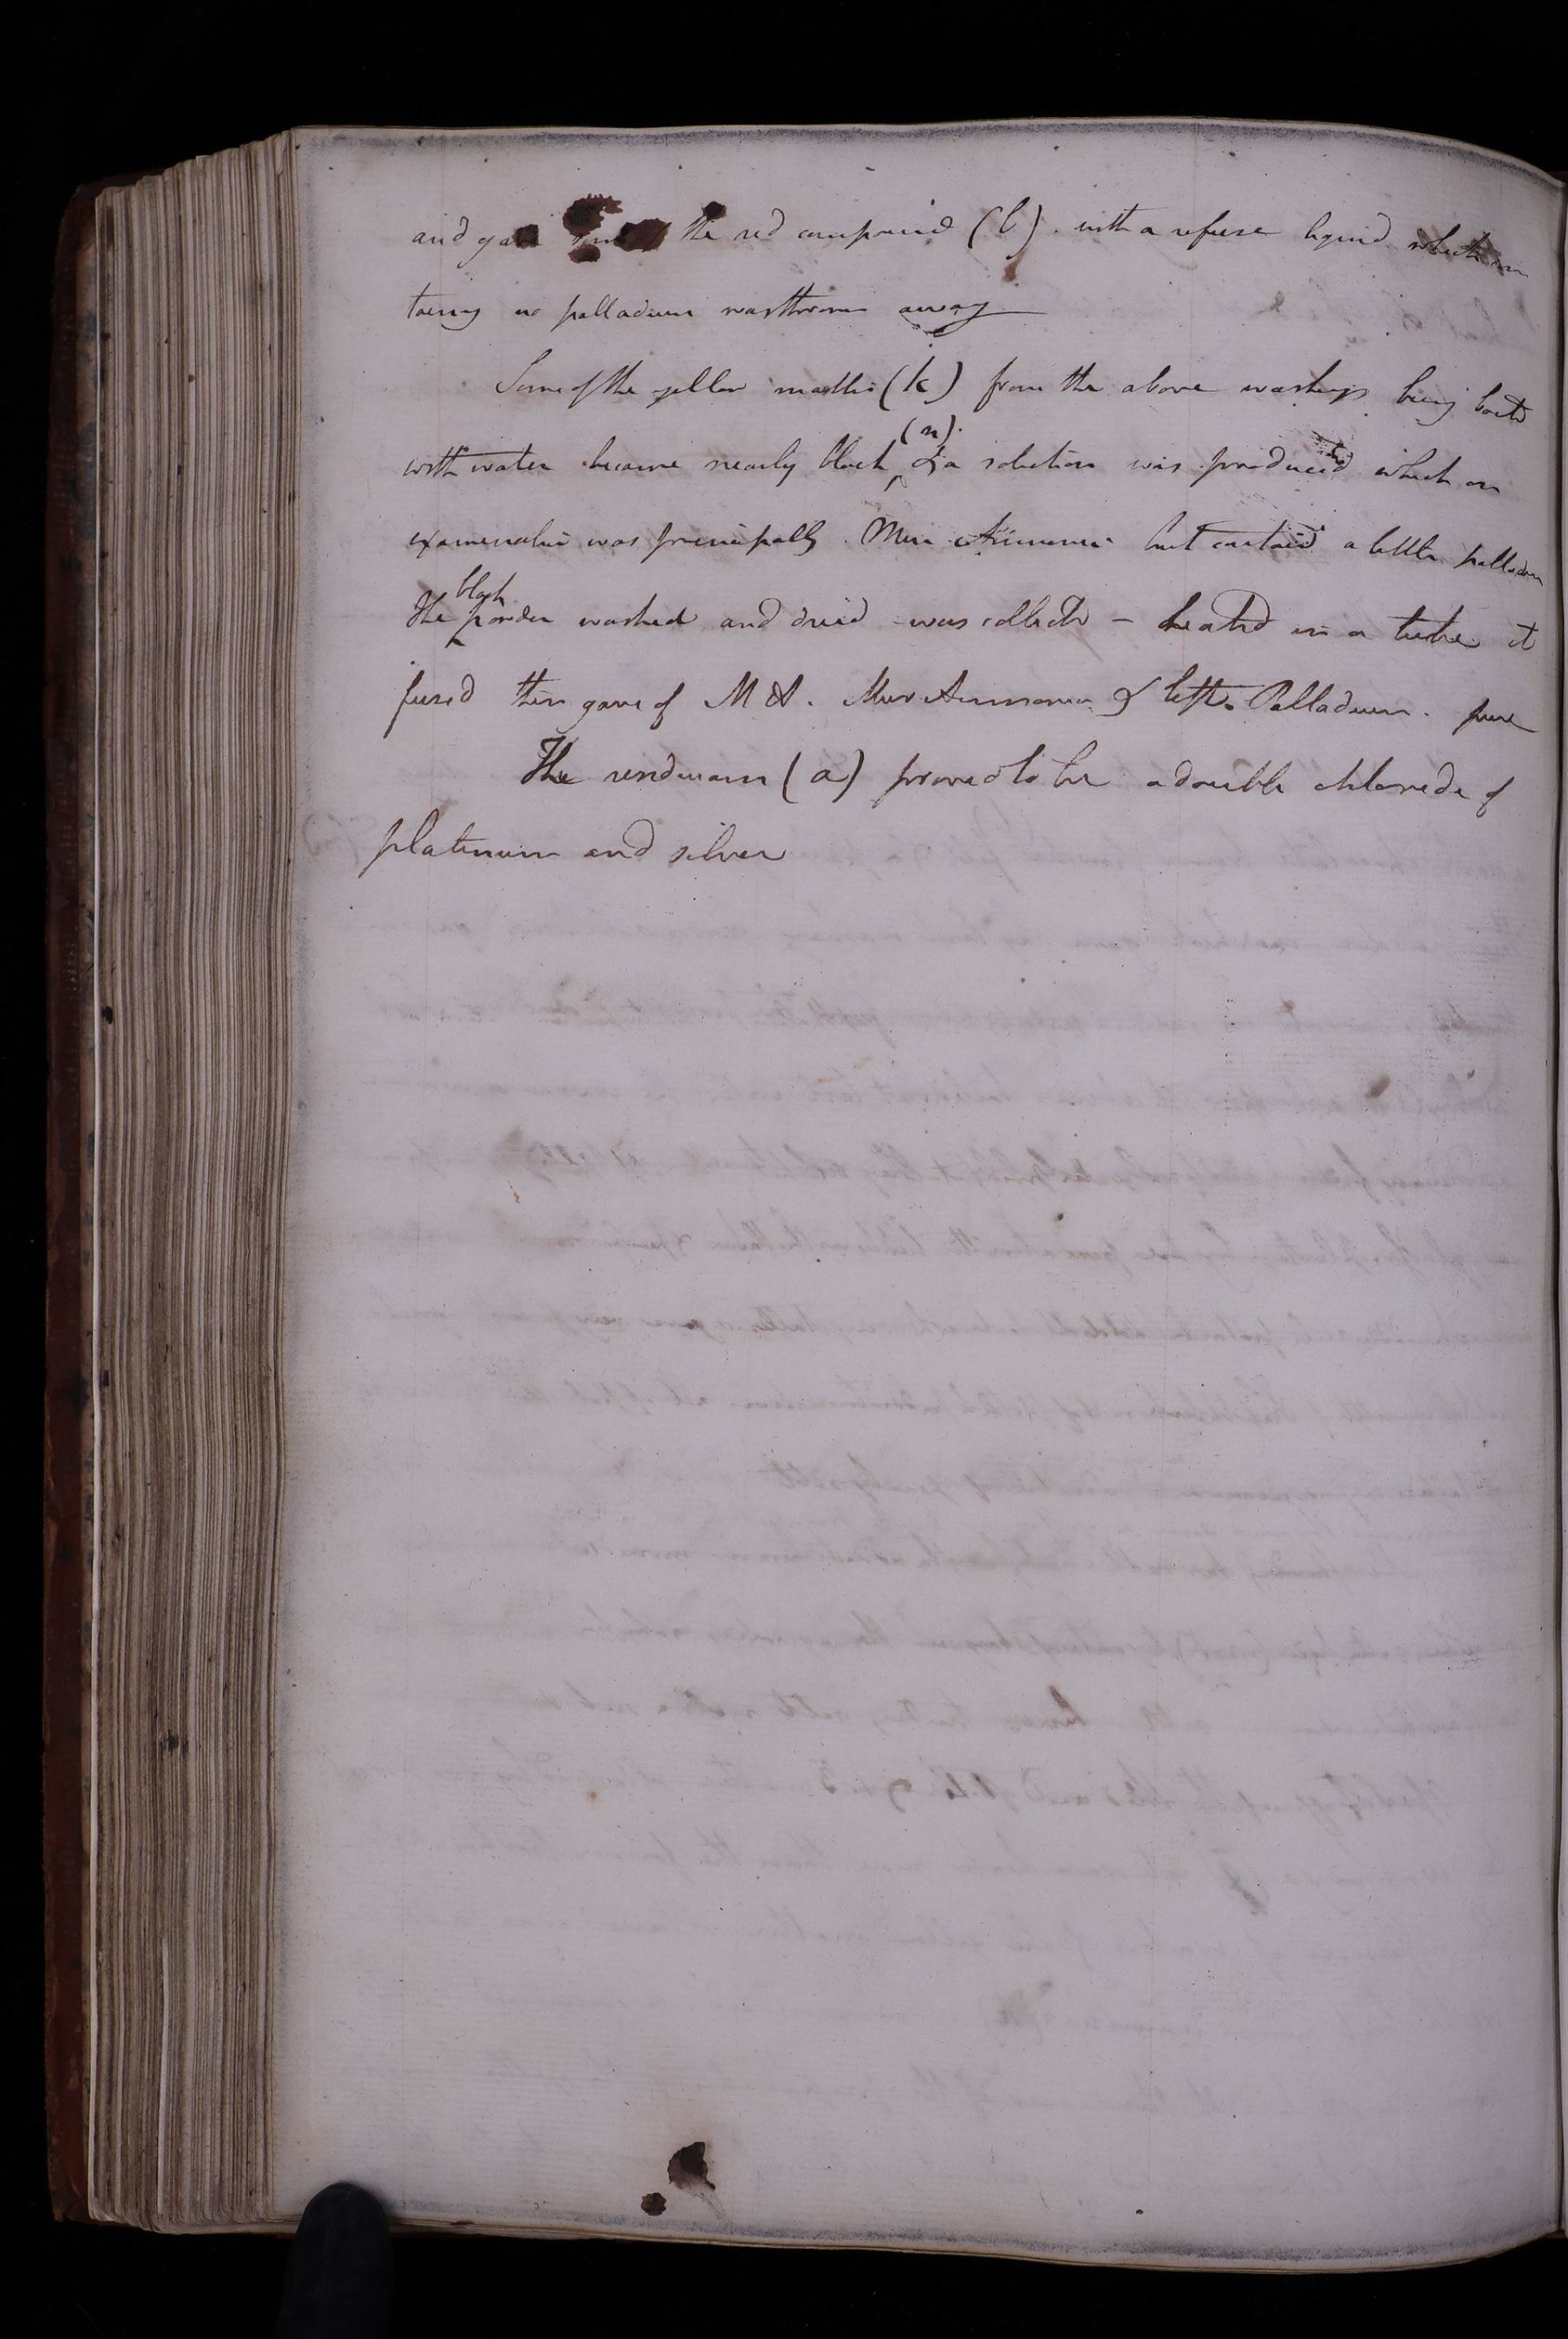 and gave some of the red compound (l). with a refuse liquid which con
taing no palladium was thrown away
Some of the yellow matter (k) from the above washings being boild
with water became nearly black (n). & a solution was produced which on
examination was principally Mur Ammonia but containd a little palladium
The black powder washed and dried was collectd - heatd in a tube it
fused then gave of M A. Mur Ammonia & left Palladium. pure
The residuum (a) proved to be a double chloride of
platinum and silver